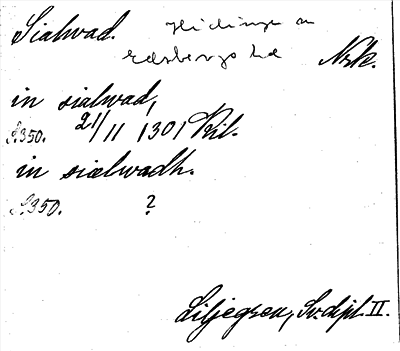 Sialwad. Hidinge sn
Edsbergs hd Nrk.
in sialwad,
S.350. 21/11 1301 Kil.
in siælwadh.
S.350. ?
Liljegren, Sv. dipl. II.